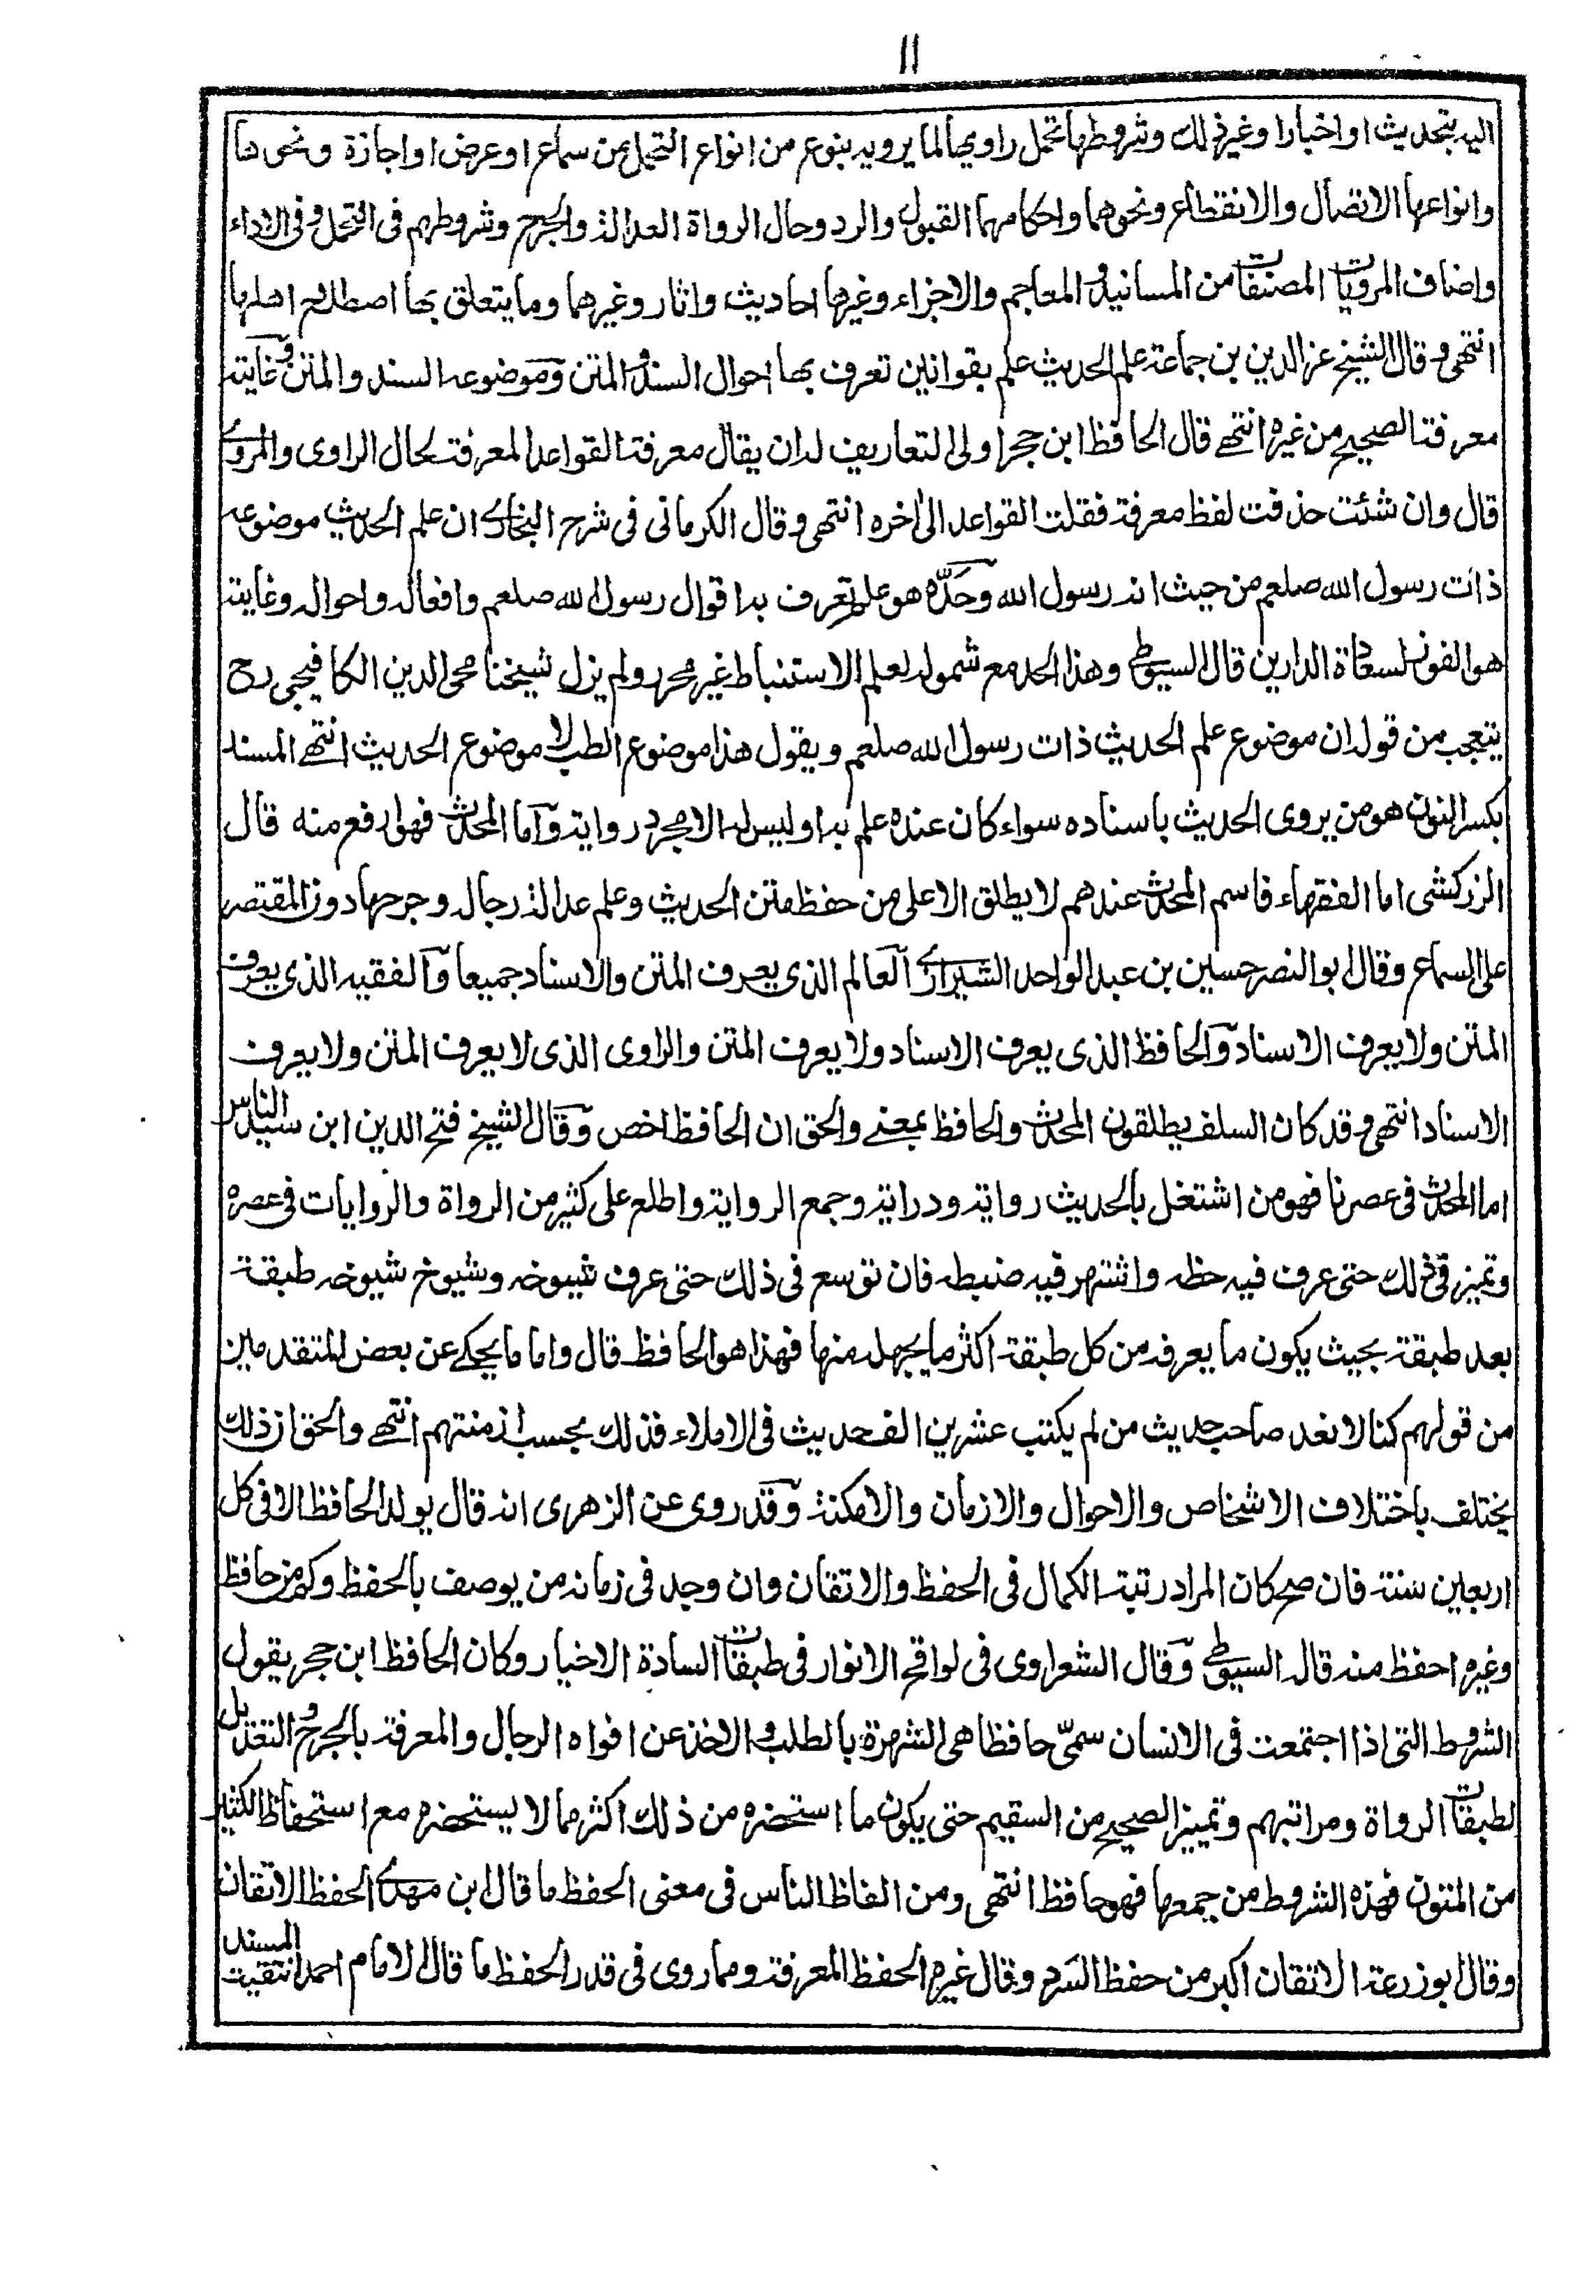 ١١
اليه بتحديث او اخبار او غير ذلك وشروطها تحمل راويها لما يرويه بنوع من انواع التحمل من سماع او عرض او اجازة ونحوها
وانواعها الاتصال والانقطاع ونحوهما واحكامهما القبول والرد وحال الرواة العدالة والجرح وشروطهم فى التحمل وفى الاداء
واصناف المرويات المصنفات من المسانيد والمعاجم والاجزاء وغيرها احاديث واثار وغيرهما وما يتعلق بها اصطلاح اهلها
انتهى وقال الشيخ عز الدين بن جماعة علم الحديث علم بقوانين تعرف بها احوال السند والمتن وموضوعه السند والمتن وغايته
معرفة الصحيح من غيره انتهے قال الحافظ ابن حجر اولى التعاريف له ان يقال معرفة القواعد المعرفة بحال الراوى والمروے
قال وان شئت حذفت لفظ معرفة فقلت القواعد الى اخره انتهى وقال الكرمانى فى شرح البخارے ان علم الحديث موضوعه
ذات رسول الله صلعم من حيث انه رسول الله وحَدّه هو علم تعرف به اقوال رسول الله صلعم وافعاله واحواله وغايته
هو الفوز لسعادة الدارين قال السيوطے وهذا الحد مع شموله لعلم الاستنباط غير محرر ولم يزل شيخنا محى الدين الكافيجى رح
يتعجب من قوله ان موضوع علم الحديث ذات رسول الله صلعم ويقول هذا موضوع الطب لا موضوع الحديث انتهے المسند
بكسر النون هو من يروى الحديث باسناده سواء كان عنده علم به او ليس له الا مجرد رواية واما المحدث فهو ارفع منه قال
الزركشى اما الفقهاء فاسم المحدث عندهم لا يطلق الا على من حفظ متن الحديث وعلم عدالة رجاله وجرحها دون المقتصر
على السماع وقال ابو النصر حسين بن عبد الواحد الشيرازے العالم الذى يعرف المتن والاسناد جميعا والفقيه الذى يعرف
المتن ولا يعرف الاسناد والحافظ الذى يعرف الاسناد ولا يعرف المتن والراوى الذى لا يعرف المتن ولا يعرف
الاسناد انتهى وقد كان السلف يطلقون المحدث والحافظ بمعنے والحق ان الحافظ اخص وقال الشيخ فتح الدين ابن سيد الناس
اما المحدث فى عصرنا فهو من اشتغل بالحديث رواية ودراية وجمع الرواية واطلع على كثير من الرواة والروايات فى عصره
وتميز فى ذلك حتى عرف فيه حظه واشتهر فيه ضبطه فان توسع فى ذلك حتى عرف شيوخه وشيوخ شيوخه طبقة
بعد طبقة بحيث يكون ما يعرفه من كل طبقة اكثر ما يجهله منها فهذا هو الحافظ قال واما ما يحكے عن بعض المتقدمين
من قولهم كنا لا نعد صاحب حديث من لم يكتب عشرين الف حديث فى الاملاء فذلك بحسب ازمنتهم انتهے والحق ان ذلك
يختلف باختلاف الاشخاص والاحوال والازمان والامكنة وقد روى عن الزهرى انه قال يولد الحافظ الا فى كل
اربعين سنة فان صح كان المراد رتبة الكمال فى الحفظ والاتقان وان وجد فى زمانه من يوصف بالحفظ وكم من حافظ
وغيره احفظ منه قاله السيوطے وقال الشعراوى فى لواقح الانوار فى طبقات السادة الاخيار وكان الحافظ ابن حجر يقول
الشروط التى اذا اجتمعت فى الانسان سمّى حافظا هى الشهرة بالطلب والاخذ عن افواه الرجال والمعرفة بالجرح والتعديل
لطبقات الرواة ومراتبهم وتمييز الصحيح من السقيم حتى يكون ما استحضره من ذلك اكثر مما لا يستحضره مع استحفاظ الكثير
من المتون فهذه الشروط من جمعها فهو حافظ انتهى ومن الفاظ الناس فى معنى الحفظ ما قال ابن مهدے الحفظ الاتقان
وقال ابو زرعة الاتقان اكبر من حفظ السرد وقال غيره الحفظ المعرفة ومما روى فى قدر الحفظ ما قال الامام احمد انتقيت المسند